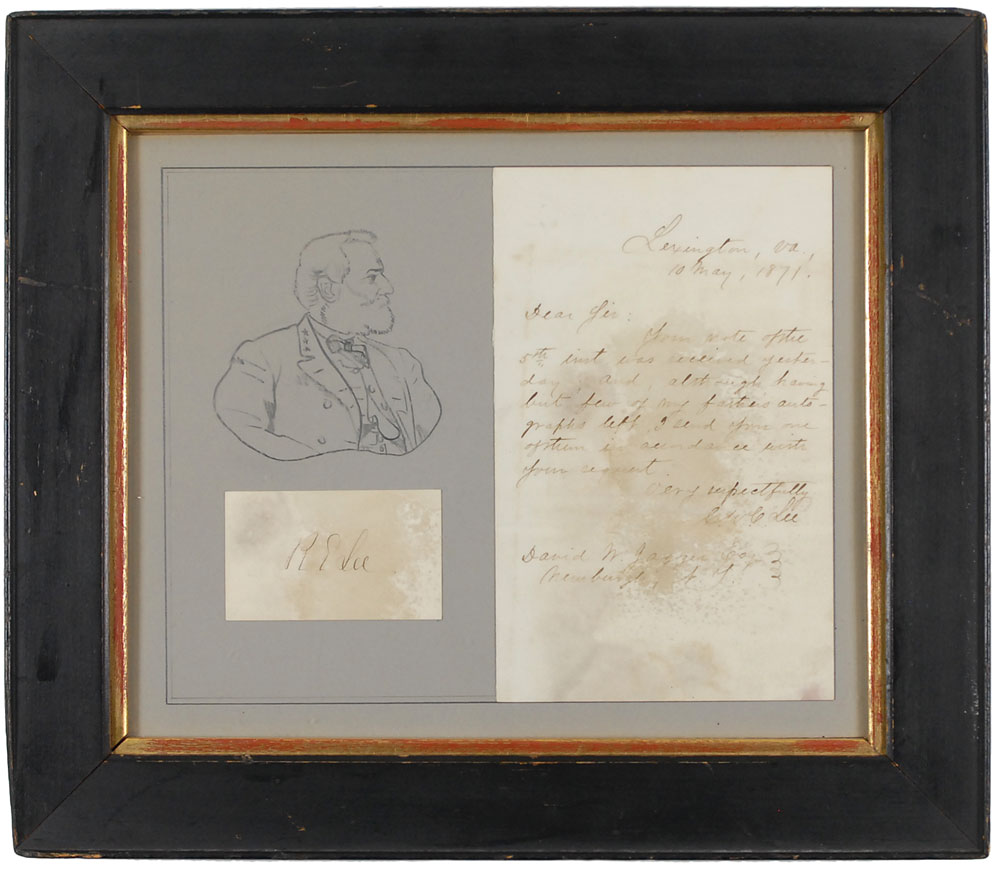 R E Lee
Lexington, Va.,
10 May, 1871.
Dear Sir:
Your note of the
5th inst was received yester-
day; and, although having
but few of my father's auto-
graphs left, I send you one
of them in accordance with
your request.
Very respectfully
G W C Lee
David W. Jagger Esq
Newburgh, N. Y.